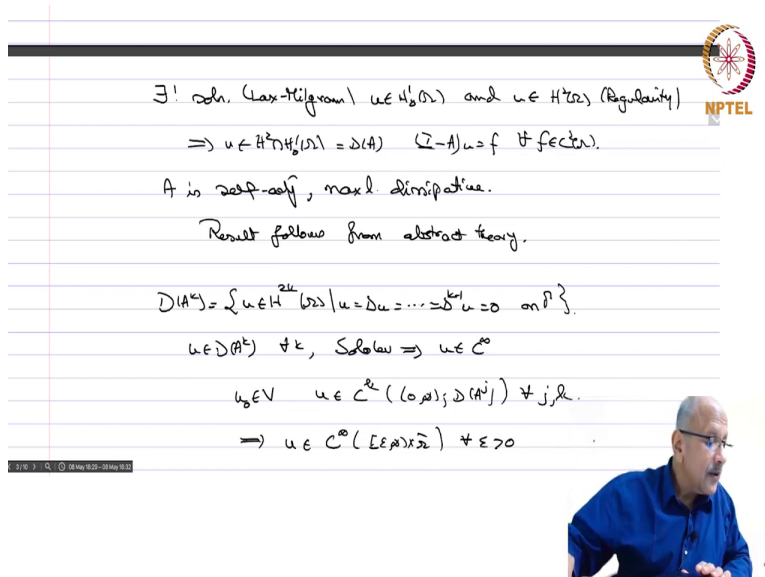 ∃! soln. (Lax-Milgram) u ∈ H¹₀(Ω) and u ∈ H²(Ω) (Regularity)
NPTEL
⇒ u ∈ H²∩H¹₀(Ω) = D(A) (I-A)u = f ∀ f ∈ L²(Ω).
A is self-adj, maxl. dissipative.
Result follows from abstract theory.
D(A^k) = {u ∈ H^{2k}(Ω) | u = Δu = ... = Δ^{k-1}u = 0 on Γ}.
u ∈ D(A^k) ∀k, Sobolev ⇒ u ∈ C^∞
u₀ ∈ V u ∈ C^k((0,∞); D(A^j)) ∀ j,k.
⇒ u ∈ C^∞([ε,∞)×Ω̄) ∀ ε > 0
3/10 08 May 18:29 – 08 May 18:32